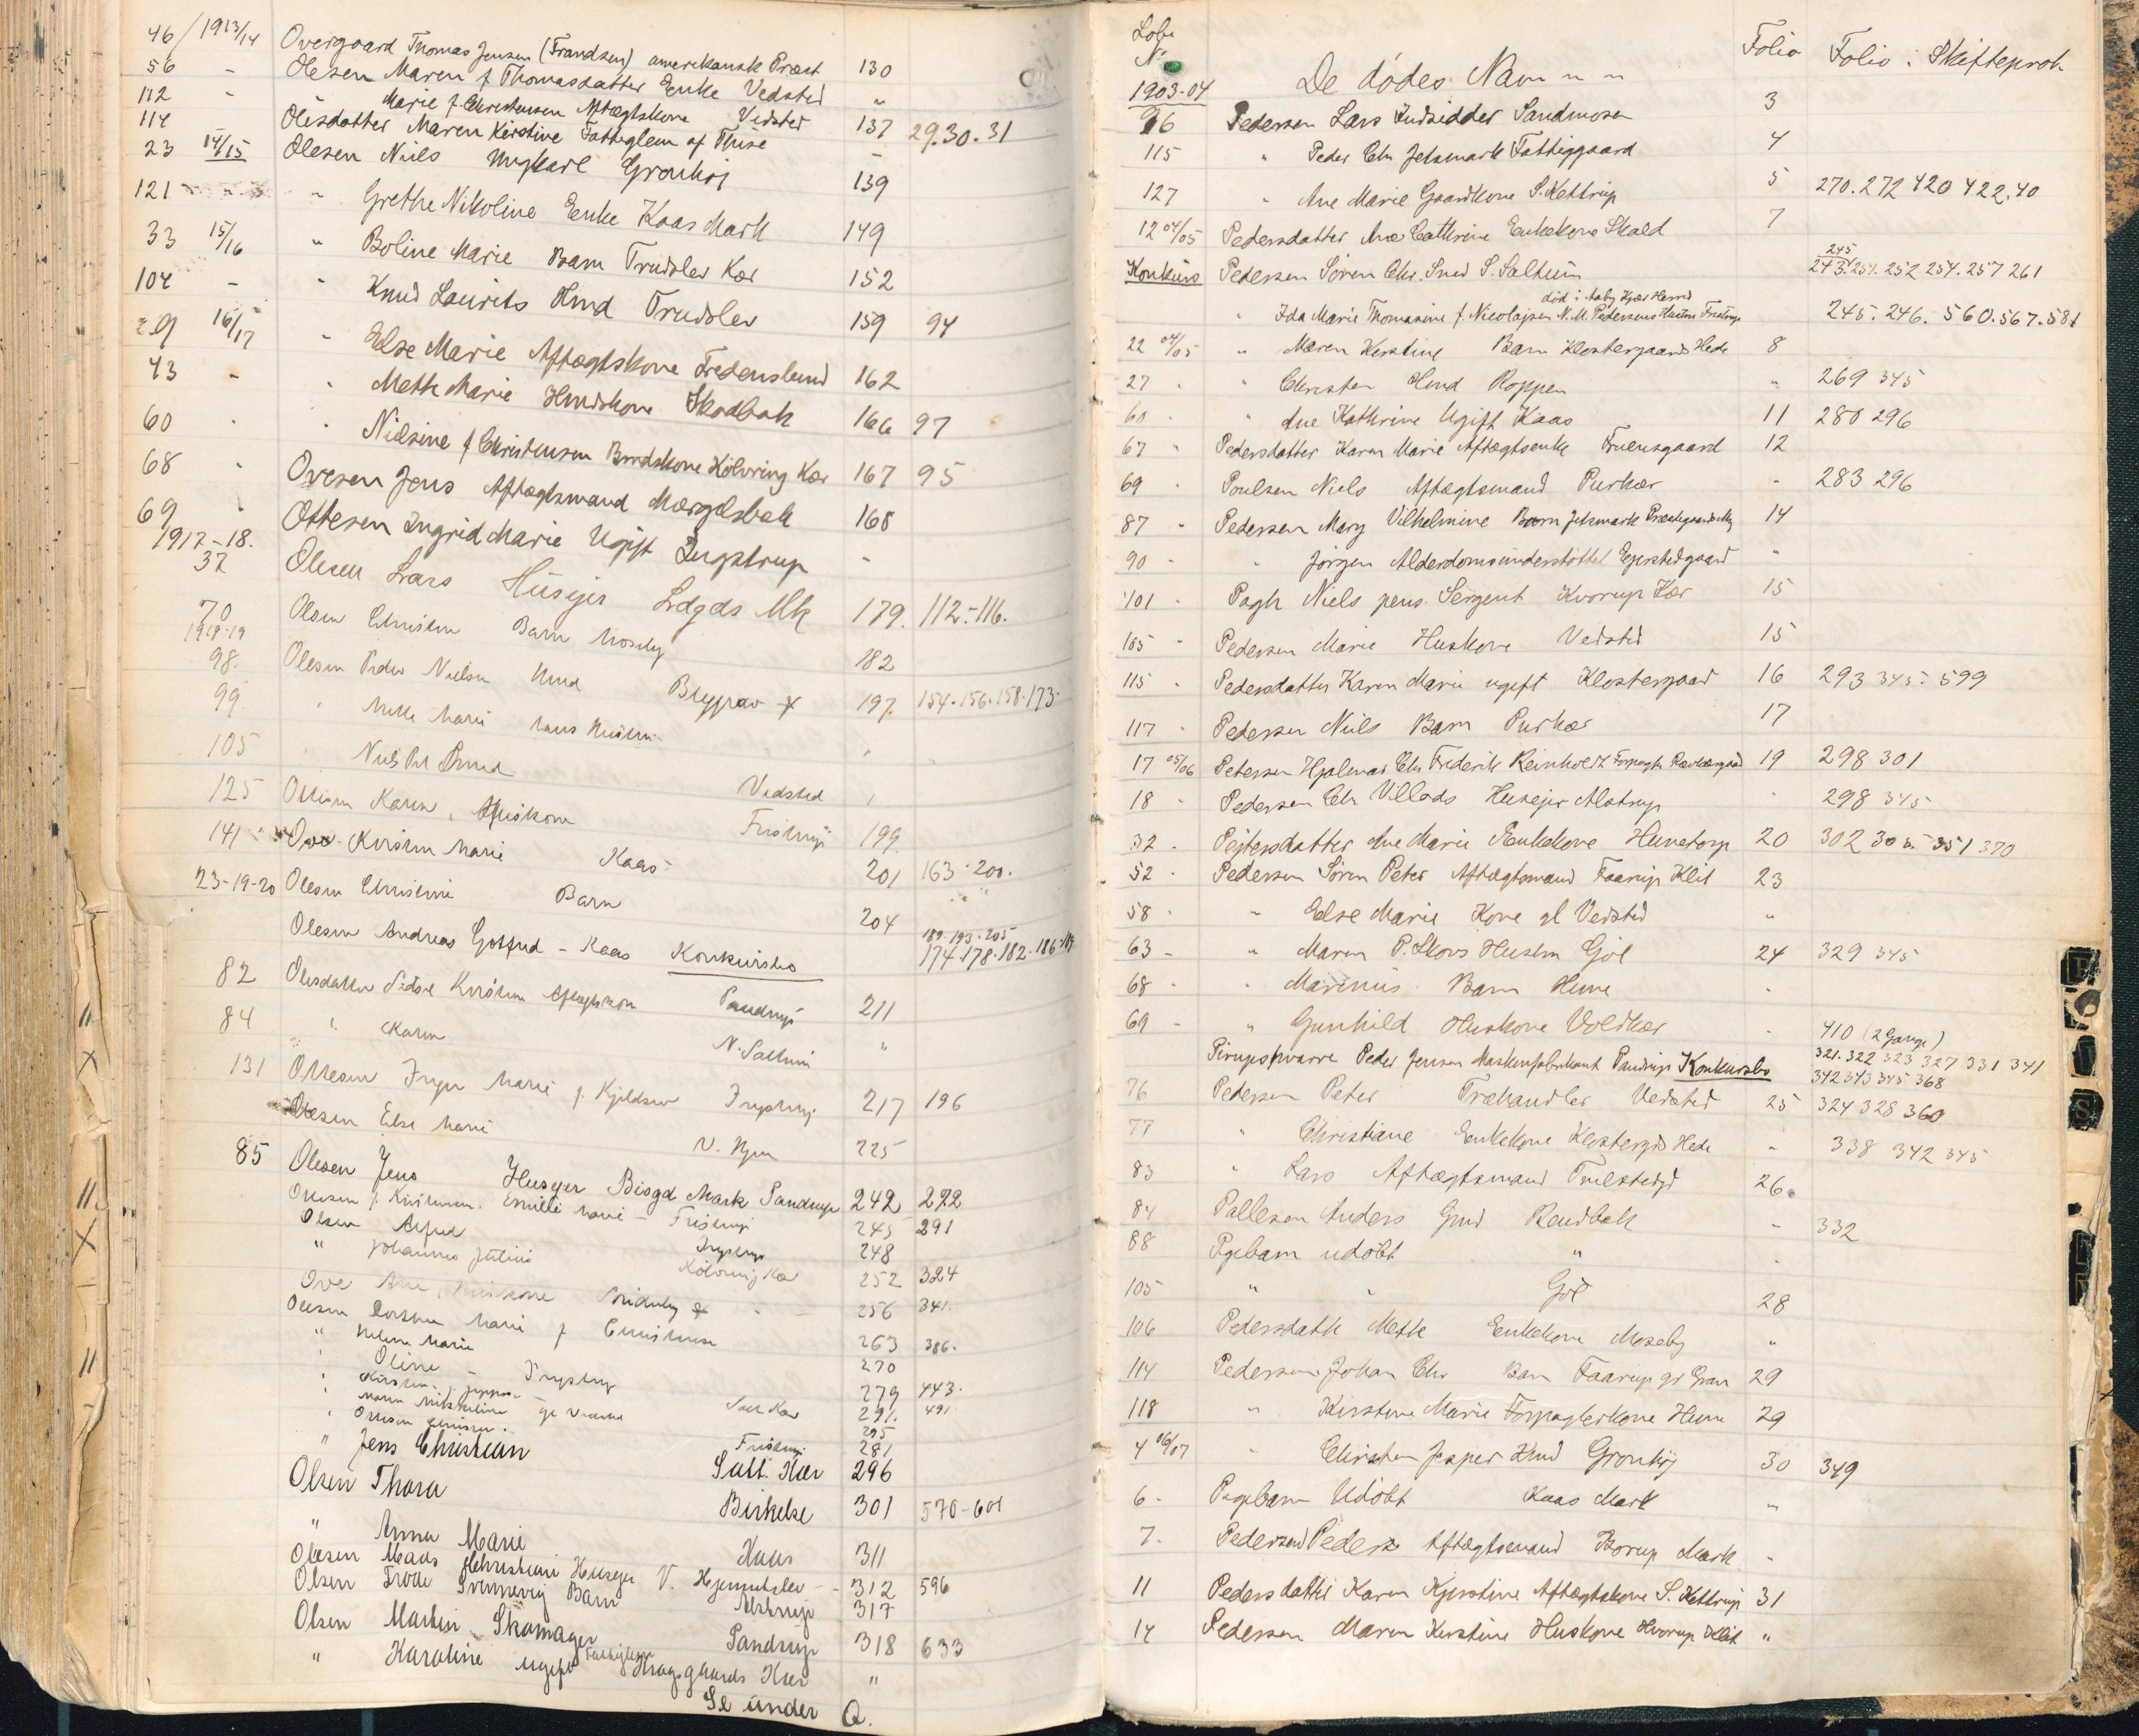 46/1913/14 Overgaard Thomas Jensen (Frandsen) amerikansk Præst 130
56 - Olesen Maren f Thomasdatter Enke Vedsted "
112 - Marie f. Christensen Aftægtskone Vedsted 137 29.30.31
114 Olesdatter Maren Kirstine Fattiglem af Thise -
23 14/15 Olesen Niels Ungkarl Grønhøj 139
121 " Grethe Nikoline Enke Kaas Mark 149
33 15/16 " Boline Marie Barn Trudslev Kær 152
104 - " Knud Laurits Hmd Trudslev 159 94
29 16/17 " Else Marie Aftægtskone Fredenslund 162
43 - " Mette Marie Hmdskone Skodbak 166 97
60 " Nielsine f Christensen Brodskone Kølvring Kær 167 95
68 " Ovesen Jens Aftægtsmand Mærgelsbak 168
69 Ottesen Ingrid Marie Ugift Ingstrup -
1917-18.
37 Olesen Lars Husejer Lrdgds Mk 179. 112.-116.
70 Olsen Christen Barn Moseby 182
1918-19
98. Olesen Peder Nielsen Hmd 197. 154.156.158.173
99 " Mette Marie "
105 Vedsted "
125 Ottesen Karen, Aftskone Fristrup 199
141 Ove Kirsten Marie Kaas 201 163.200.
23-19-20 Olesen Barn 204
189.193.205
Olesen Andreas Gotfred - Kaas Konkursbo 174.178.182.186.
82 Olesdatter Sidsel Kirsten Aftægtskone Pandrup 211
84 " Karen N. Saltum "
131 Ottesen Inger Marie f. Kjeldsen Ingstrup 217 196
Olesen Else Marie 225
85 Olesen Jens Husejer Bisgd Mark Pandrup 242 272
Ottesen f. Kristensen. Emilie Marie - Fristrup 245 291
Olsen Alfred Ingstrup 248
" Johannes Julius Kølvring Kær 252 324
Ove Ane 256 341.
Olesen Dorthea Marie f Christensen 263 386.
" Marie 270
" Oline - Ingstrup 279 443.
" Kirsten 291. 491
" 295
" Ottesen Fristrup 281
" Jens Christian Salt. Kær 296
Olsen Thora Birkelse 301 570-601
" Anna Marie Kaas 311
Olesen Mads Christian Husejer V. Hjermitslev - 312 596
Olsen Frode Svennevig Barn Alstrup 317
Olsen Martin Skomager Pandrup 318 633
" Karoline ugift Fattiglem Kragsgaards Kær "
Se under Q.
Løbe
N.
De dødes Navn Folio Folio i Skifteprok
1903-04
96 Pedersen Lars Indsidder Sandmosen 3
115 " Peder Chr Jetsmark Fattiggaard 4
127 " Ane Marie Gaardkone S. Kettrup 5 270.272 420 422.40
12 04/05 Pedersdatter Ane Cathrine Enkekone Skald 7
245
Konkurs Pedersen Søren Chr. Smed S. Saltum 243.251.252 254.257 261
død i Aaby Kjær Herred
" Ida Marie Thomasine f. Nicolajsen N.M. Pedersens Hustru Fristrup 245. 246. 560.567.581
22 04/05 " Maren Kirstine Barn Klostergaards Hede 8
27 " " Christen Hmd Roppen " 269 345
60 " " Ane Kathrine Ugift Kaas 11 280 296
67 " Pedersdatter Karen Marie Aftægtsenke Fruensgaard 12
69 " Poulsen Niels Aftægtsmand Purkær - 283 296
87 " Pedersen Mary Vilhelmine Barn Jetsmark Præstegaards Mk 14
90 - " Jørgen Alderdomsunderstøttet Egerstedgaard "
101 - Pagh Niels pens. Sergent Kvorup Kær 15
105 - Pedersen Marie Huskone Vedsted 15
115 - Pedersdatter Karen Marie ugift Klostergaard 16 293 345. 599
117 - Pedersen Niels Barn Purkær 17
17 05/06 Petersen Hjalmar Chr Frederik Reinholdt Forpagter Rævkærgaard 19 298 301
18 - Pedersen Chr Villads Husejer Alstrup " 298 345
32 - Pejtersdatter Ane Marie Enkekone Hunetorp 20 302 305 351 370
52 - Pedersen Søren Peter Aftægtsmand Faarup Klit 23
58 - " Else Marie Kone gl Vedsted "
63 - " Maren P. Skovs Hustru Gjøl 24 329 345
68 - " Marinus Barn Hune "
69 - " Gunhild Huskone Voldkær " 410 (2 Gange)
Pirupshvarre Peder Jensen Maskinfabrikant Pandrup Konkursbo 321.322 323 327 331 341
342 343 345 368
76 Pedersen Peter Træhandler Vedsted 25 324 328 360
77 " Christiane Enkekone Klostergds Hede " 338 342 345
83 " Lars Aftægtsmand Trulstedgd 26
84 Pallesen Anders Gmd Rendbæk " 332
88 Pigebarn udøbt " "
105 " " Gjøl 28
106 Pedersdatt Mette Enkekone Moseby "
114 Pedersen Johan Chr Barn Faarup gl Gran 29
118 " Kirstine Marie Forpagterkone Hune 29
4 06/07 " Christen Jesper Hmd Grønhøj 30 349
6 - Pigebarn Udøbt Kaas Mark "
7 - Pedersen Peder Aftægtsmand Borup Mark "
11 Pedersdatter Karen Kjerstine Aftægtskone S. Kettrup 31
14 Pedersen Maren Kirstine Huskone Hvorup Klit "